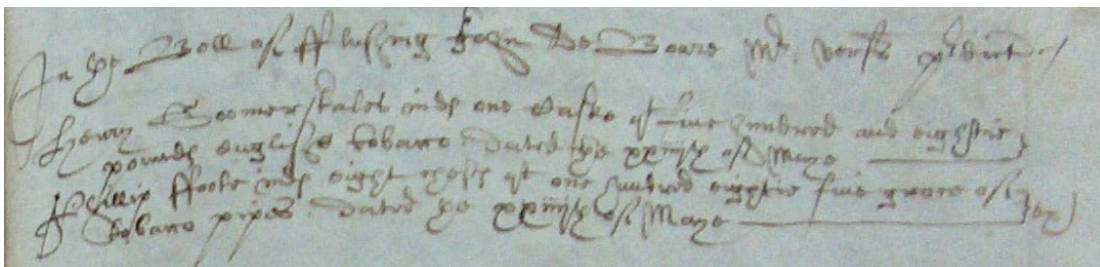 In the Boll of fflushing John De Boare Mr. versus predict
Henry Soomerskales inds one Caske qt five hundred and eightie
pounds english tobacco. dated the xxiijth of Maye
Phillip ffoote inds eight chests qt one hundred eightie five groce of
tobacco pipes. dated the xxiiijth of Maye ex)